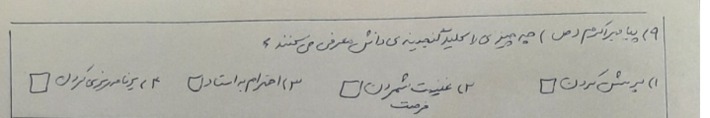 ۹) پیامبر اکرم (ص) چه چیزی را کلید گنجینه ی دانش معرفی می کنند ؟
۱) پرسش کردن □ ۲) غنیت شمردن □ ۳) احترام به استاد □ ۴) برنامه ریزی کردن □
فرصت